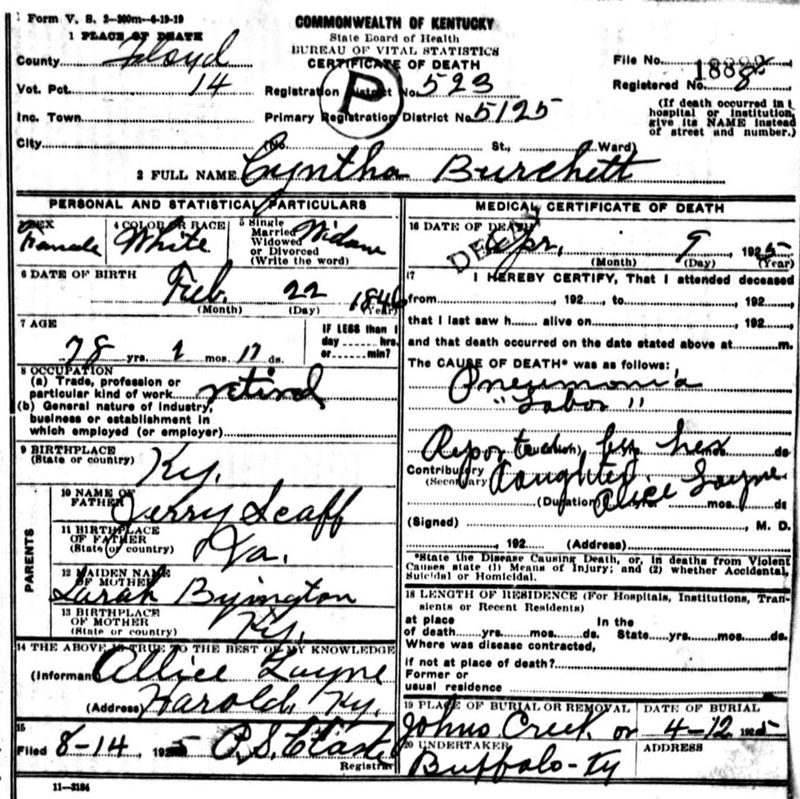 Form V. S. 2—300m—6-19-19
COMMONWEALTH OF KENTUCKY
State Board of Health
BUREAU OF VITAL STATISTICS
CERTIFICATE OF DEATH
1 PLACE OF DEATH
County Floyd
Vot. Pct. 14
Inc. Town
City
Registration District No. 523
Primary Registration District No. 5125
P
(No. St., Ward)
File No.
Registered No. 8
(If death occurred in
hospital or institution,
give its NAME instead
of street and number.)
2 FULL NAME Cyntha Burchett
PERSONAL AND STATISTICAL PARTICULARS
SEX Female
4 COLOR OR RACE White
5 Single
Married
Widowed
or Divorced
(Write the word)
6 DATE OF BIRTH
Feb. 22 1846
(Month) (Day) (Year)
7 AGE
78 yrs. 1 mos. 17 ds.
IF LESS than 1
day hrs.
or min?
8 OCCUPATION
(a) Trade, profession or
particular kind of work retired
(b) General nature of industry,
business or establishment in
which employed (or employer)
9 BIRTHPLACE
(State or country) Ky.
PARENTS
10 NAME OF
FATHER Jerry Scaff
11 BIRTHPLACE
OF FATHER
(State or country) Va.
12 MAIDEN NAME
OF MOTHER
Sarah Byington
13 BIRTHPLACE
OF MOTHER
(State or country) Ky.
14 THE ABOVE IS TRUE TO THE BEST OF MY KNOWLEDGE
(Informan Allice Layne
(Address) Harold, Ky.
15
Filed 8-14, 1925
Registrar
11—3184
MEDICAL CERTIFICATE OF DEATH
16 DATE OF DEATH
Apr. 9, 1925
(Month) (Day) (Year)
17 I HEREBY CERTIFY, That I attended deceased
from , 192 , to , 192 ,
that I last saw h alive on , 192 ,
and that death occurred on the date stated above at m.
The CAUSE OF DEATH* was as follows:
Pneumonia
"Labor"
(Duration) by her ds
Contributory Daughter
(Secondary) Alice Layne
(Duration) mos. ds
(Signed) , M. D.
, 192 (Address)
*State the Disease Causing Death, or, in deaths from Violent
Causes state (1) Means of Injury; and (2) whether Accidental,
Suicidal or Homicidal.
18 LENGTH OF RESIDENCE (For Hospitals, Institutions, Tran-
sients or Recent Residents)
at place In the
of death yrs. mos. ds. State yrs. mos. ds.
Where was disease contracted,
if not at place of death?
Former or
usual residence
19 PLACE OF BURIAL OR REMOVAL
Johns Creek or
DATE OF BURIAL
4-12 1925
20 UNDERTAKER
Buffalo-Ky
ADDRESS